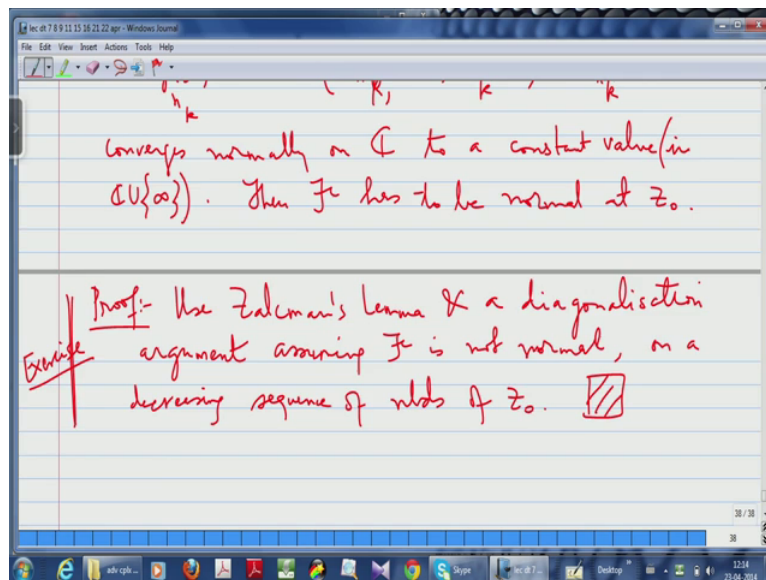 lec dt 7 8 9 11 15 16 21 22 apr - Windows Journal
File Edit View Insert Actions Tools Help
n_k k, k n_k
converges normally on ℂ to a constant value (in
ℂU{∞}). Then ℱ has to be normal at z₀.
Proof:- Use Zalcman's Lemma & a diagonalisction
Exercise argument assuming ℱ is not normal, on a
decreasing sequence of nbds of z₀.
38 / 38
38
adv cplx... Skype lec dt 7 ... Desktop 12:14
23-04-2014